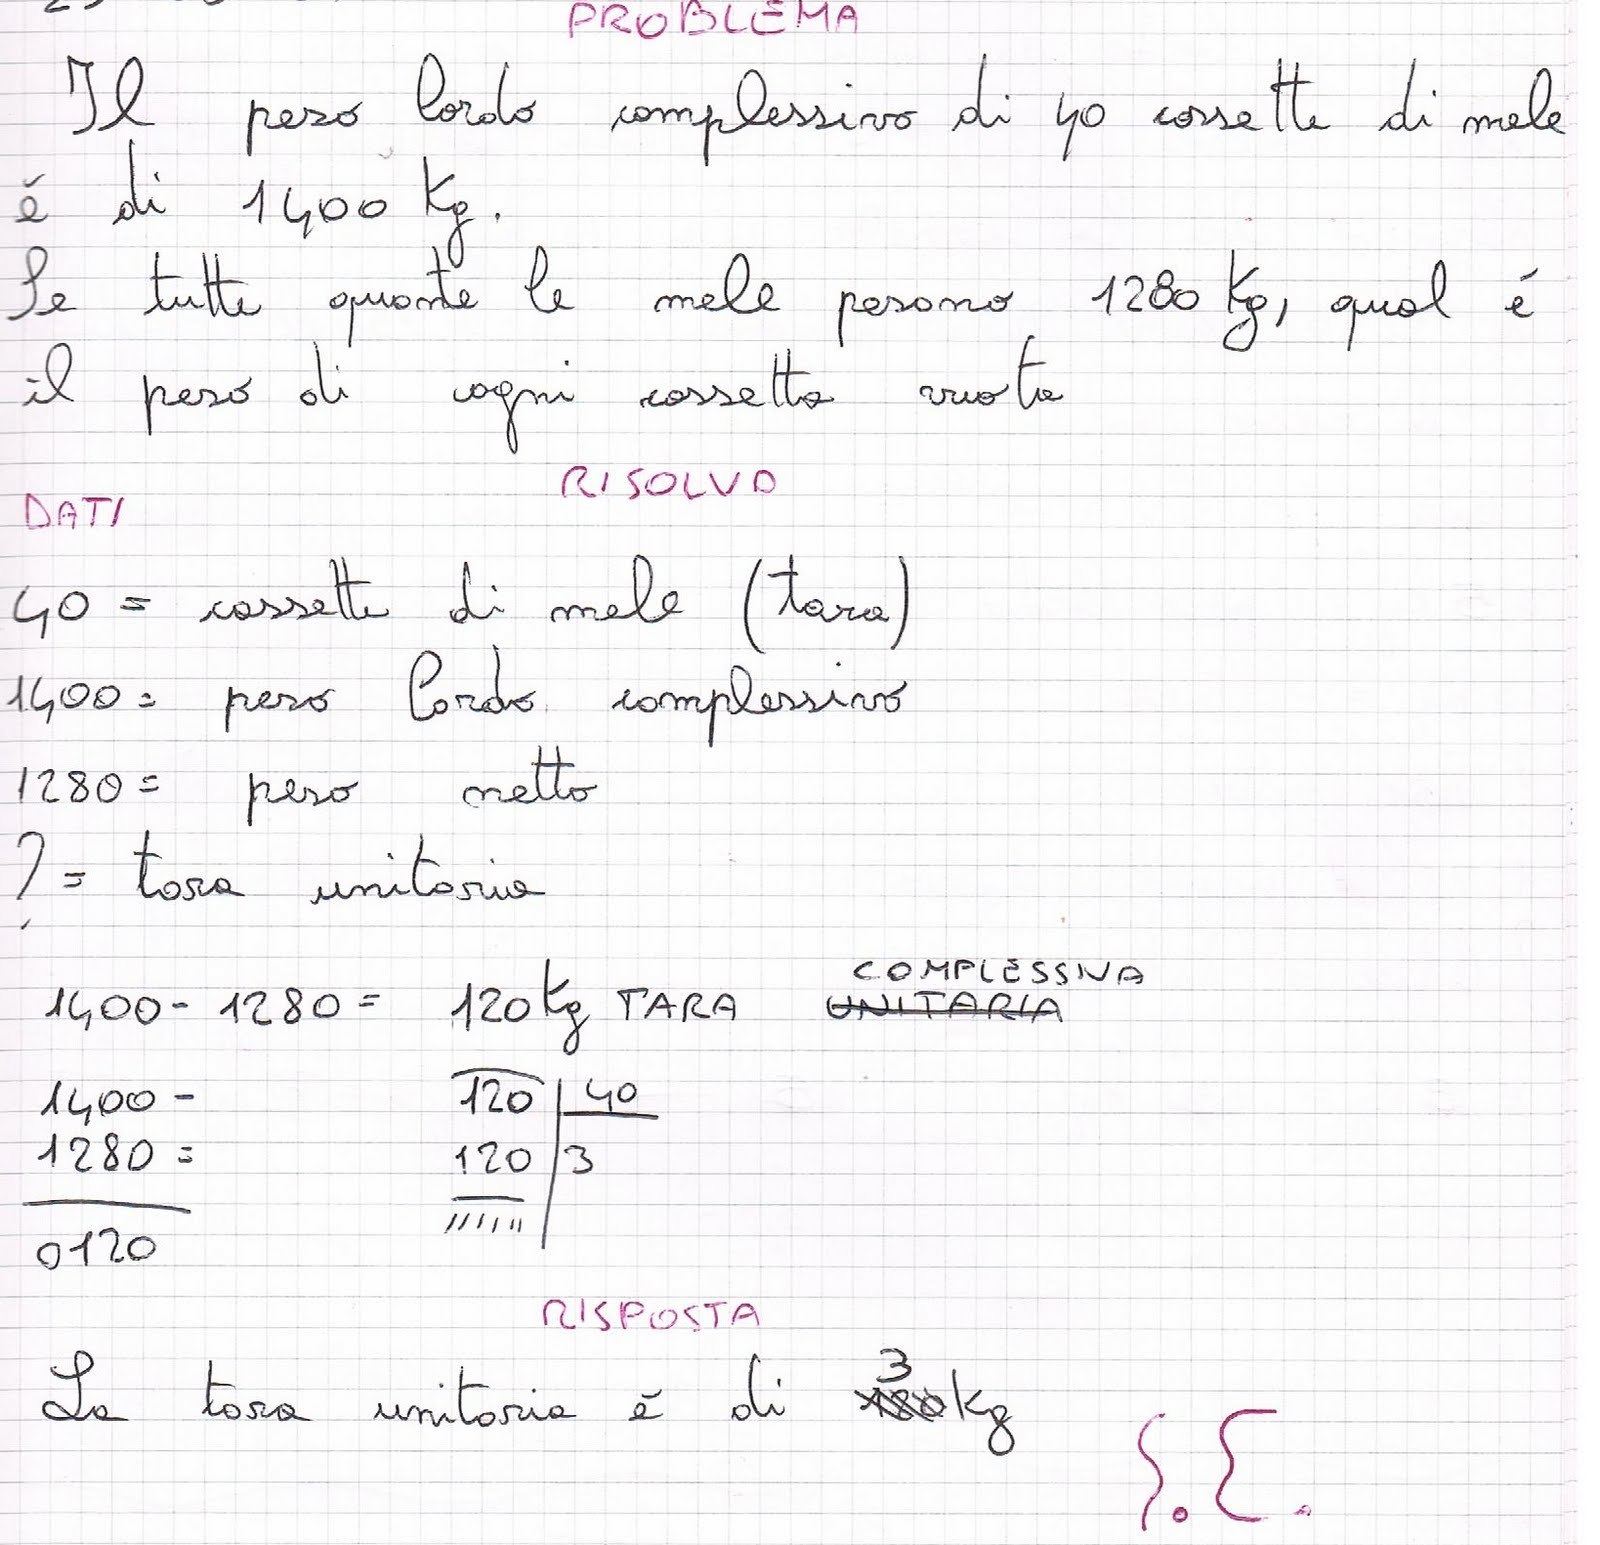 PROBLEMA
Il peso lordo complessivo di 40 cassette di mele
è di 1400 Kg.
Se tutte quante le mele pesano 1280 Kg, qual è
il peso di ogni cassetta vuota
RISOLVO
DATI
40 = cassette di mele (tara)
1400 = peso lordo complessivo
1280 = peso netto
? = tara unitaria
COMPLESSIVA
1400 - 1280 = 120 Kg TARA UNITARIA
1400 - 120 40
1280 = 120 3
0120
RISPOSTA
3
La tara unitaria è di Kg
S.E.